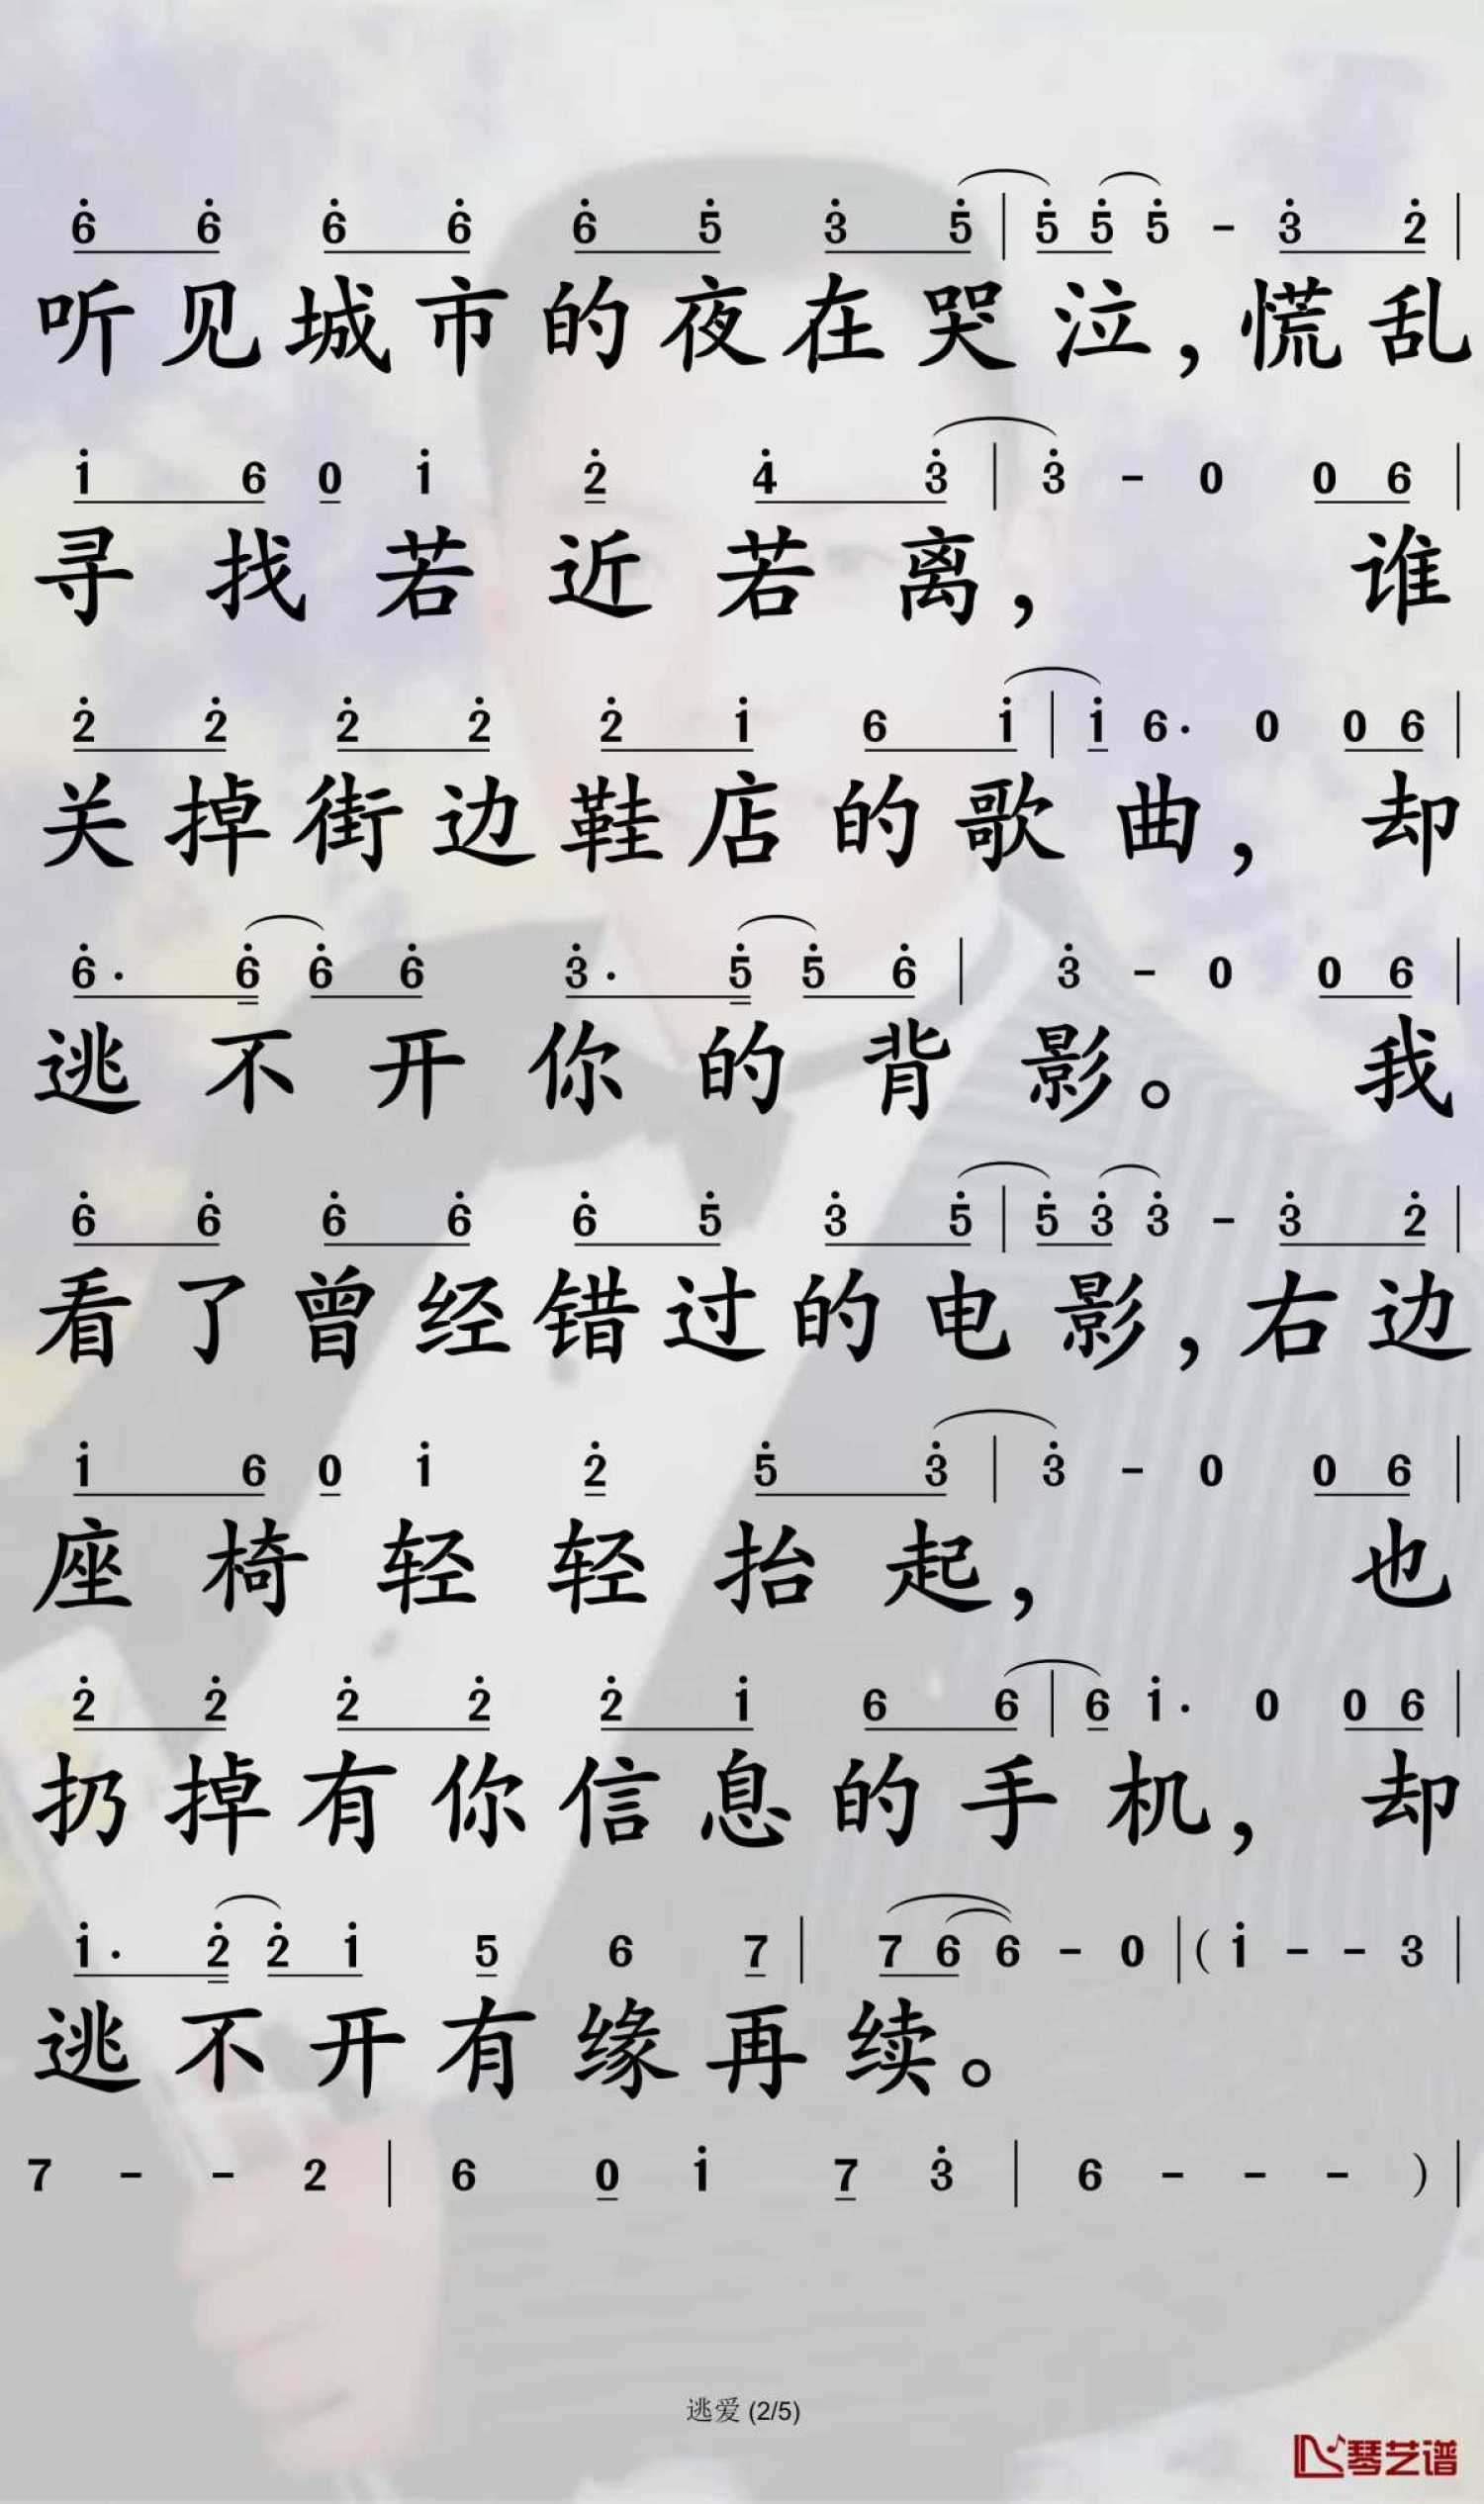 6̇ 6̇ 6̇ 6̇ 6̇ 5̇ 3̇ 5̇ | 5̇ 5̇ 5̇ - 3̇ 2̇ |
听见城市的夜在哭泣，慌乱
1̇ 6 0 1̇ 2̇ 4̇ 3̇ | 3̇ - 0 0 6 |
寻找若近若离，谁
2̇ 2̇ 2̇ 2̇ 2̇ 1̇ 6 1̇ | 1̇ 6· 0 0 6 |
关掉街边鞋店的歌曲，却
6̇· 6̇ 6̇ 6̇ 3̇· 5̇ 5̇ 6̇ | 3̇ - 0 0 6 |
逃不开你的背影。我
6̇ 6̇ 6̇ 6̇ 6̇ 5̇ 3̇ 5̇ | 5̇ 3̇ 3̇ - 3̇ 2̇ |
看了曾经错过的电影，右边
1̇ 6 0 1̇ 2̇ 5̇ 3̇ | 3̇ - 0 0 6 |
座椅轻轻抬起，也
2̇ 2̇ 2̇ 2̇ 2̇ 1̇ 6 6 | 6 1̇· 0 0 6 |
扔掉有你信息的手机，却
1̇· 2̇ 2̇ 1̇ 5 6 7 | 7 6 6 - 0 | (1̇ - - 3 |
逃不开有缘再续。
7 - - 2 | 6 0 1̇ 7 3̇ | 6 - - - ) |
逃爱 (2/5)
琴艺谱